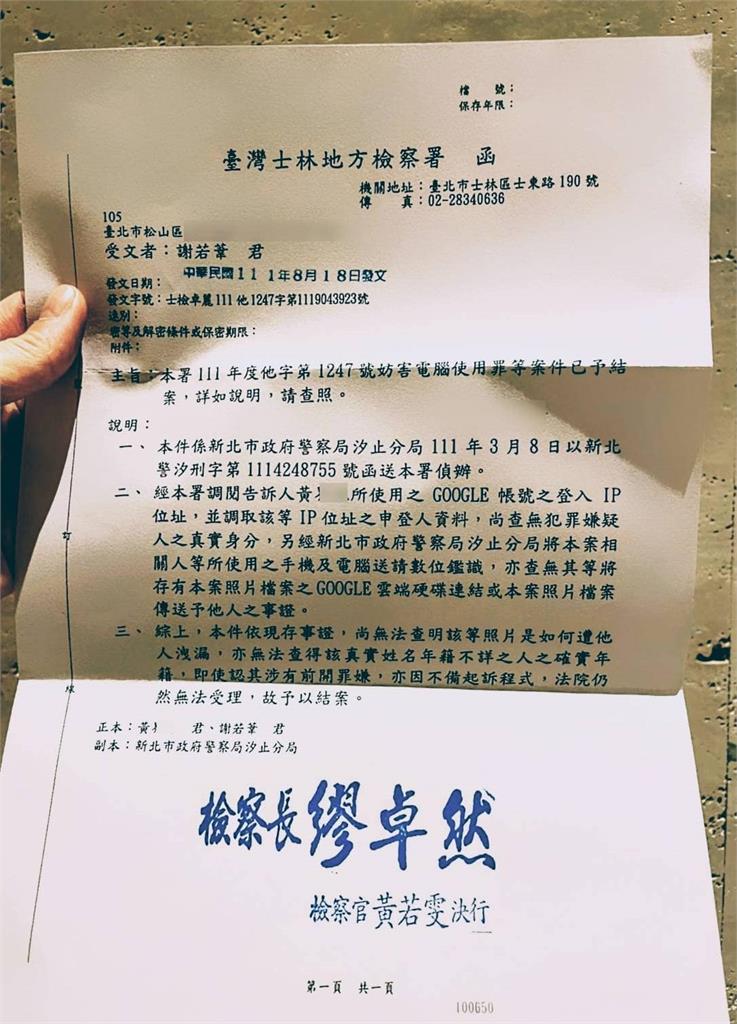 檔　　號：
保存年限：
臺灣士林地方檢察署　函
機關地址：臺北市士林區士東路190號
傳　　真：02-28340636
105
臺北市松山區
受文者：謝若葦　君
發文日期：中華民國111年8月18日發文
發文字號：士檢卓麗111他1247字第1119043923號
速別：
密等及解密條件或保密期限：
附件：
主旨：本署111年度他字第1247號妨害電腦使用罪等案件已予結
案，詳如說明，請查照。
說明：
一、本件係新北市政府警察局汐止分局111年3月8日以新北
警汐刑字第1114248755號函送本署偵辦。
二、經本署調閱告訴人黃　　所使用之GOOGLE帳號之登入IP
位址，並調取該等IP位址之申登人資料，尚查無犯罪嫌疑
人之真實身分，另經新北市政府警察局汐止分局將本案相
關人等所使用之手機及電腦送請數位鑑識，亦查無其等將
存有本案照片檔案之GOOGLE雲端硬碟連結或本案照片檔案
傳送予他人之事證。
三、綜上，本件依現存事證，尚無法查明該等照片是如何遭他
人洩漏，亦無法查得該真實姓名年籍不詳之人之確實年
籍，即使認其涉有前開罪嫌，亦因不備起訴程式，法院仍
然無法受理，故予以結案。
正本：黃　　君、謝若葦　君
副本：新北市政府警察局汐止分局
檢察長繆卓然
檢察官黃若雯決行
第一頁　共一頁
100650
訂
線